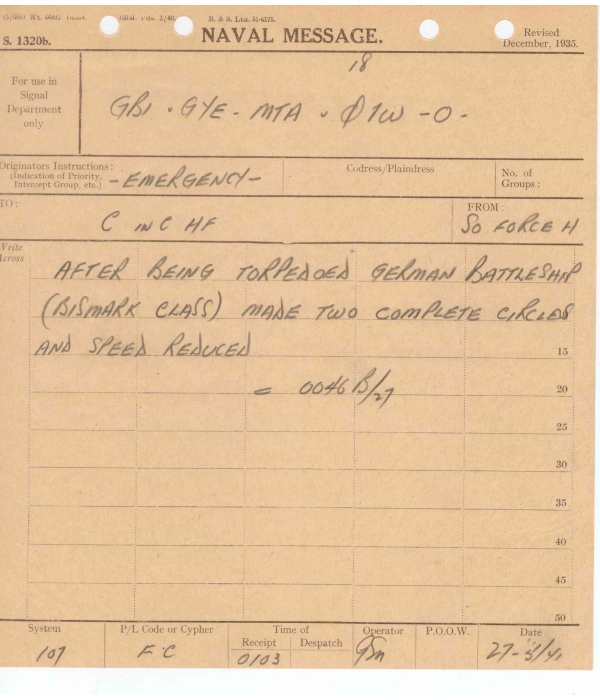 B. & S. Ltd. 51-6175.
S. 1320b.
NAVAL MESSAGE.
Revised
December, 1935.
18
For use in
Signal
Department
only
GBI · GYE - MTA - Ø1W - O -
Originators Instructions:
(Indication of Priority,
Intercept Group, etc.)
- EMERGENCY -
Codress/Plaindress
No. of
Groups:
TO:
C IN C HF
FROM:
SO FORCE H
Write
Across
AFTER BEING TORPEDOED GERMAN BATTLESHIP
(BISMARK CLASS) MADE TWO COMPLETE CIRCLES
AND SPEED REDUCED
15
= 0046 B/27
20
25
30
35
40
45
50
System
P/L Code or Cypher
Time of
Operator
P.O.O.W.
Date
Receipt
Despatch
107
FC
0103
27-5/41